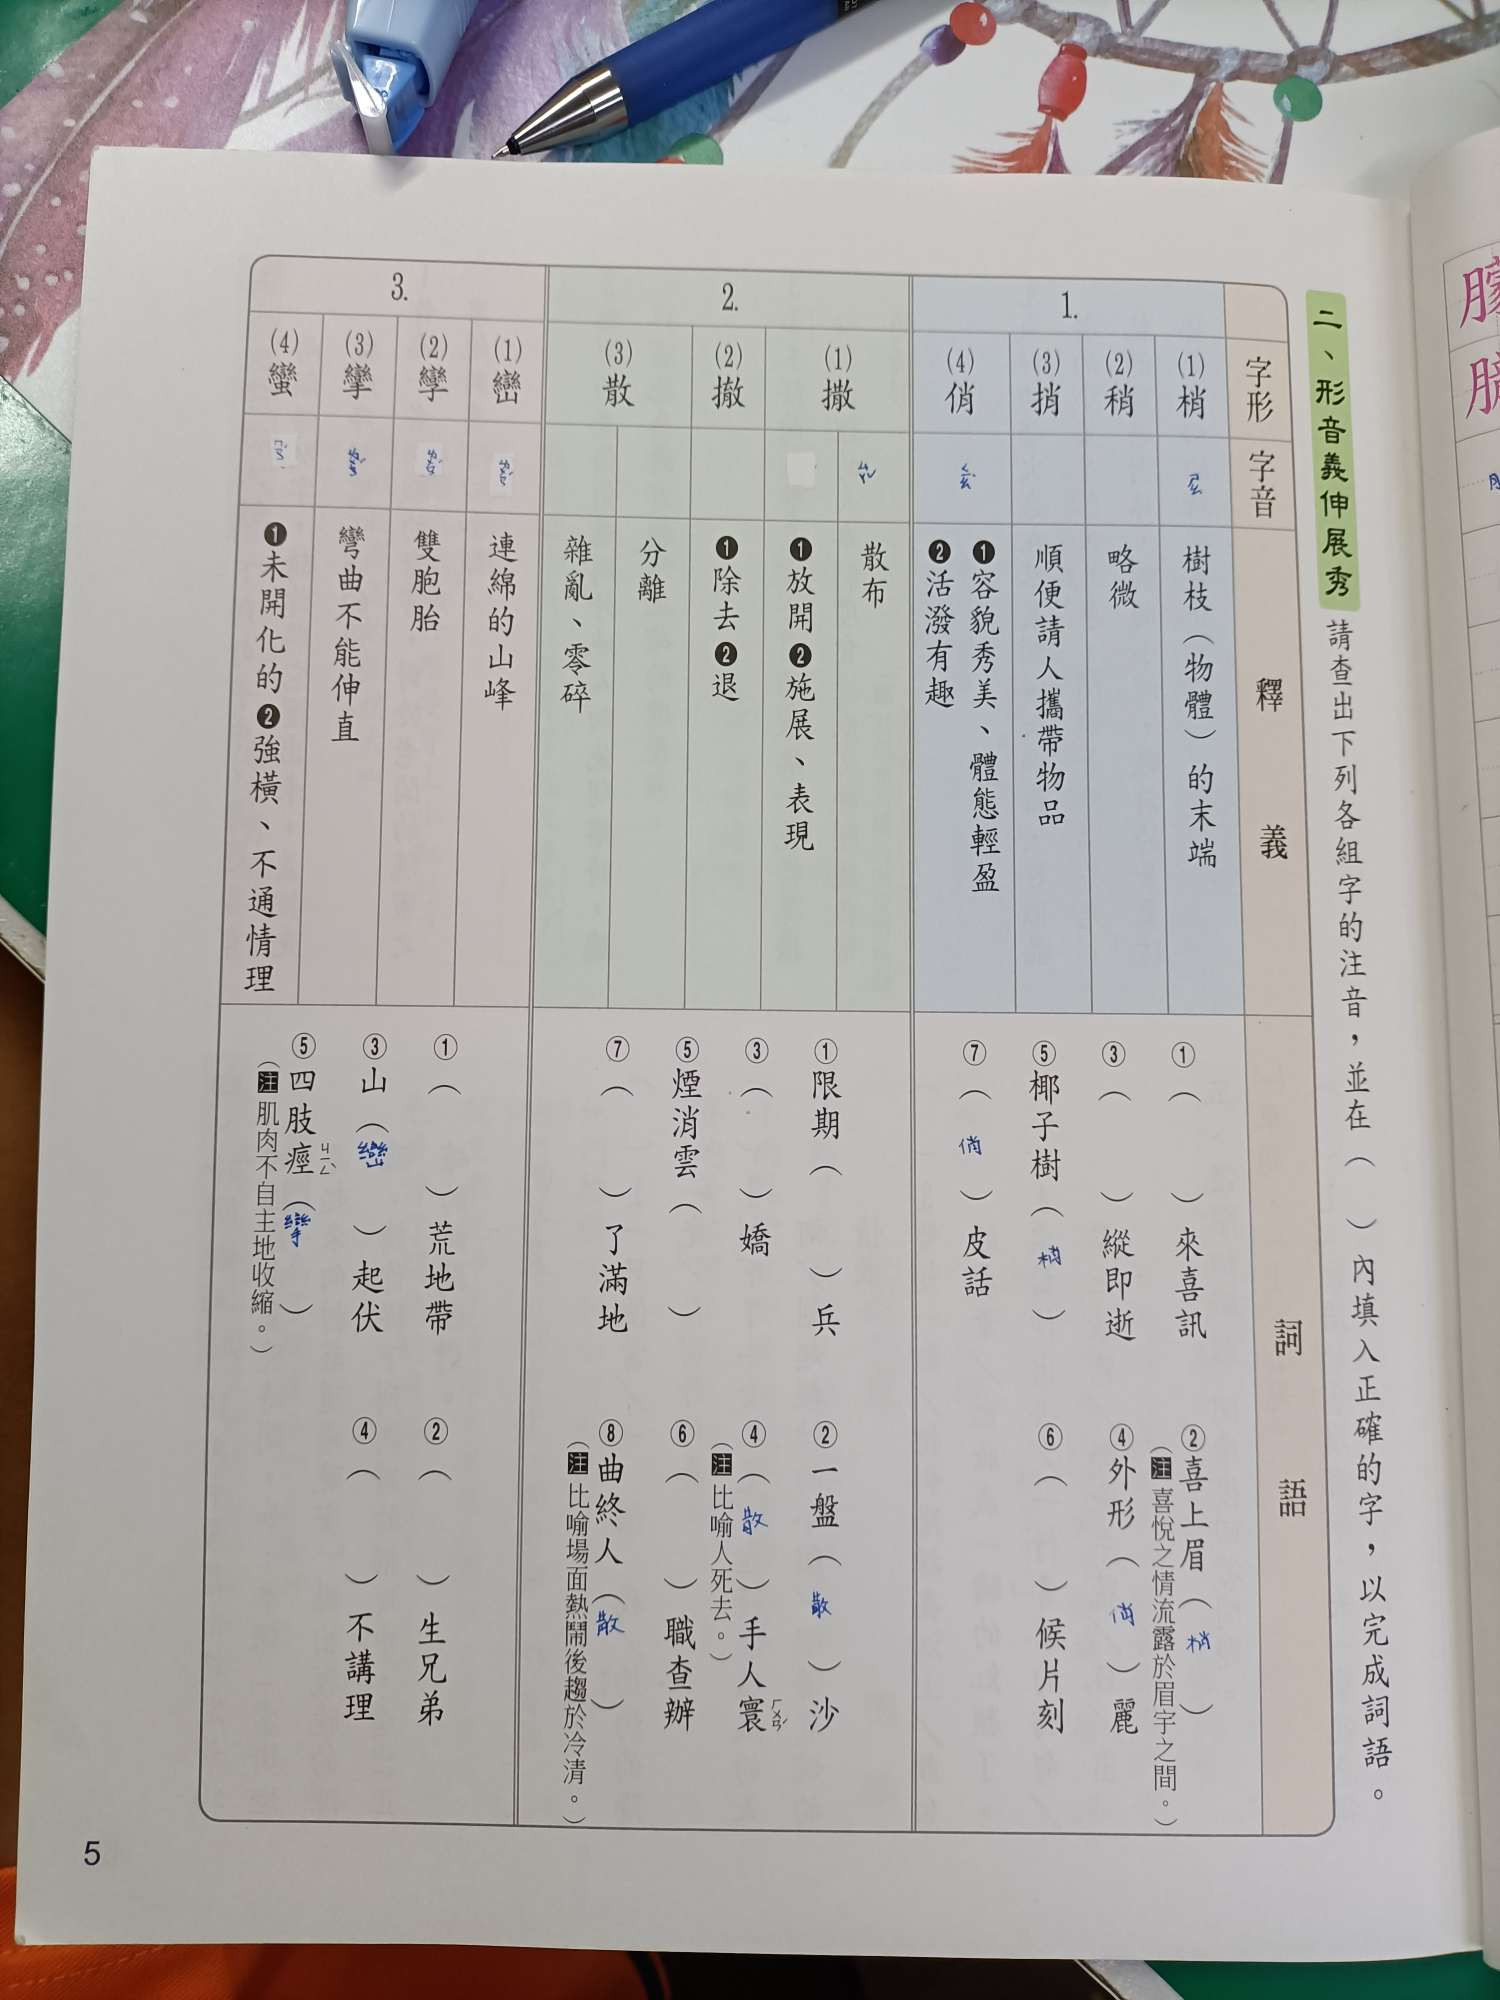 二、形音義伸展秀 請查出下列各組字的注音，並在（ ）內填入正確的字，以完成詞語。
字形 字音 釋義 詞語
1.
(1)梢 ㄕㄠ 樹枝（物體）的末端
(2)稍 略微
(3)捎 順便請人攜帶物品
(4)俏 ❶容貌秀美、體態輕盈
❷活潑有趣
①（ ）來喜訊 ②喜上眉（梢）
（注 喜悅之情流露於眉宇之間。）
③（ ）縱即逝 ④外形（俏）麗
⑤椰子樹（梢） ⑥（ ）候片刻
⑦（俏）皮話
2.
(1)撒 散布
❶放開❷施展、表現
(2)撤 ❶除去❷退
(3)散 分離
雜亂、零碎
①限期（ ）兵 ②一盤（散）沙
③（ ）嬌 ④（散）手人寰ㄏㄨㄢˊ
（注 比喻人死去。）
⑤煙消雲（ ） ⑥（ ）職查辦
⑦（ ）了滿地 ⑧曲終人（散）
（注 比喻場面熱鬧後趨於冷清。）
3.
(1)巒 ㄌㄨㄢˊ 連綿的山峰
(2)孿 ㄌㄨㄢˊ 雙胞胎
(3)攣 ㄌㄨㄢˊ 彎曲不能伸直
(4)蠻 ㄇㄢˊ ❶未開化的❷強橫、不通情理
①（ ）荒地帶 ②（ ）生兄弟
③山（巒）起伏 ④（ ）不講理
⑤四肢痙ㄐㄧㄥˋ（攣）
（注 肌肉不自主地收縮。）
5